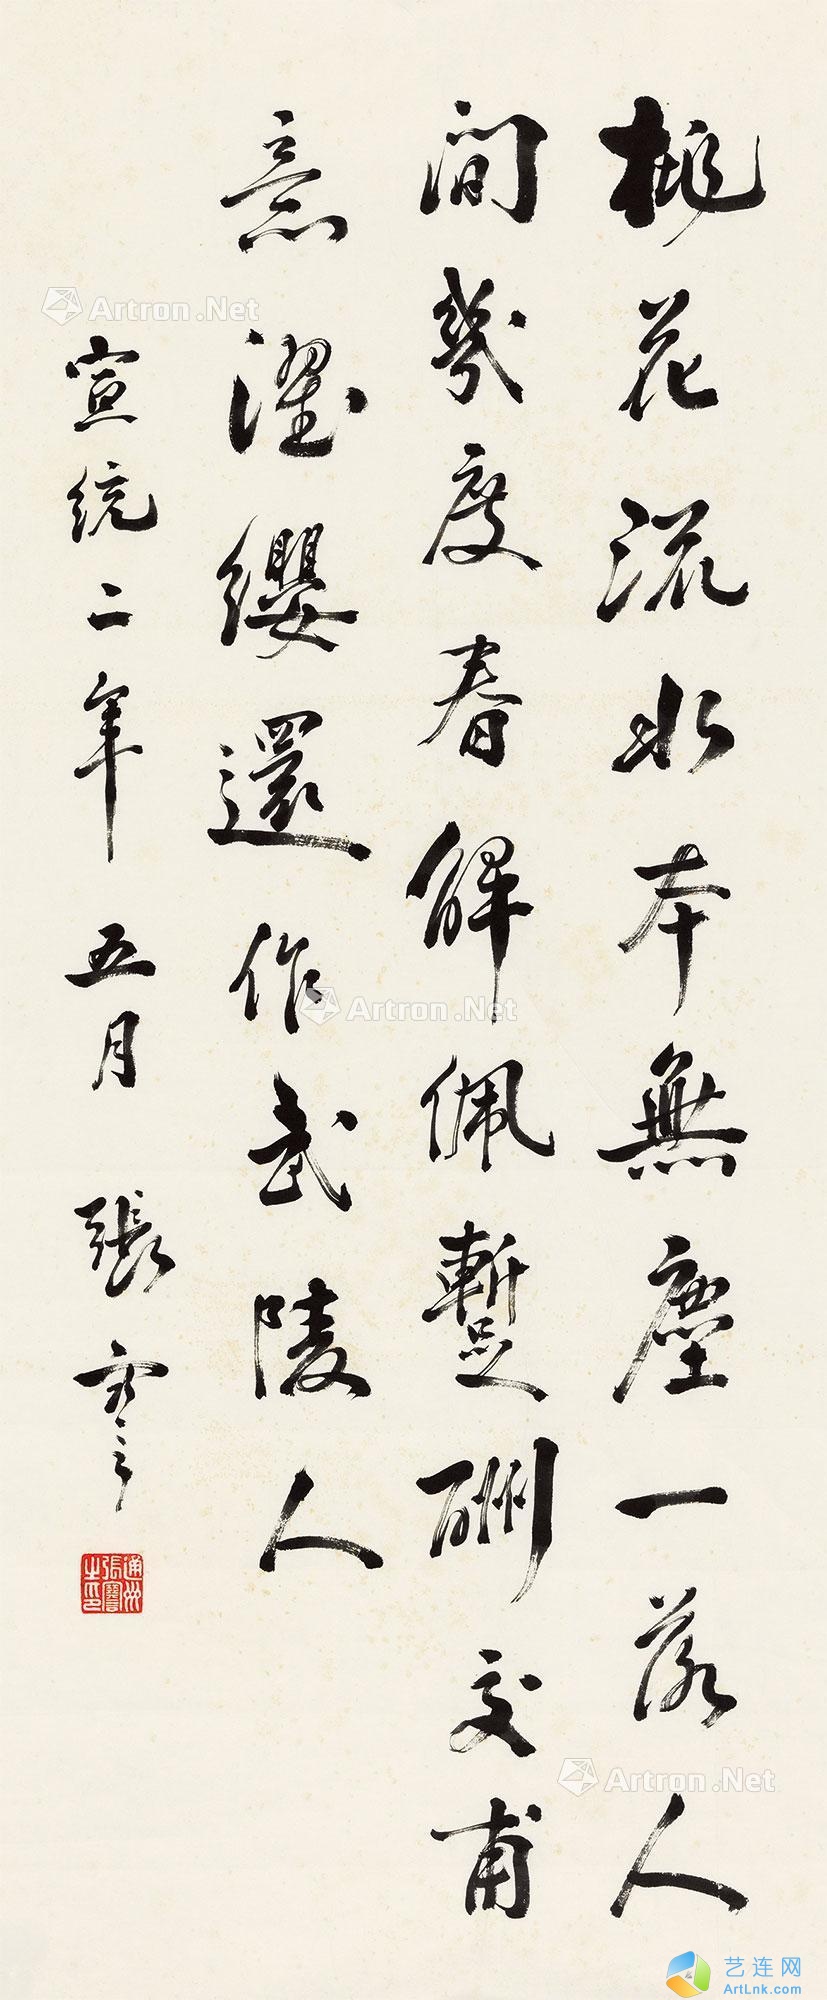 桃花流水本無塵一落人
間幾度春解佩暫酬交甫
意濯纓還作武陵人
宣統二年五月張謇
通州張謇之印
Artron.Net
Artron.Net
Artron.Net
艺连网
ArtLnk.com